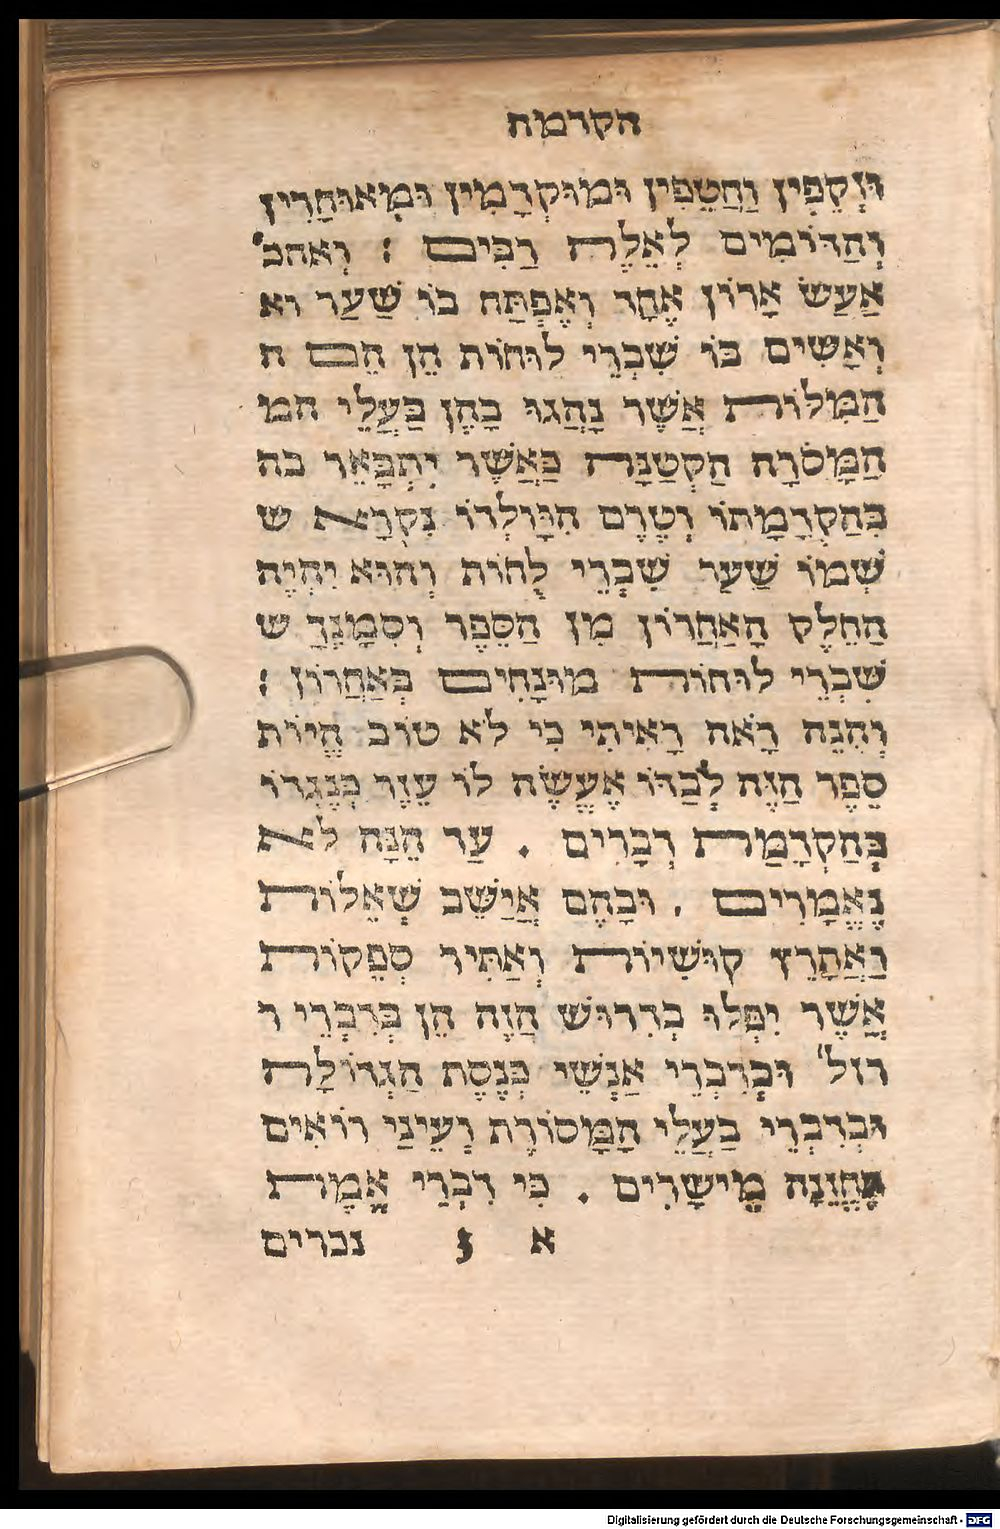 הקדמה
וּזְקֵפִין וַחֲטֵפִין וּמוּקְדָמִין וּמְאוּחָרִין
וְהַדּוֹמִים לְאֵלֶּה רַבִּים : וְאחכ'
אֶעַשׂ אָרוֹן אֶחָד וְאֶפְתַּח בּוֹ שַׁעַר וא
וְאָשִׂים בּוֹ שִׁבְרֵי לוּחוֹת הֵן הֵם ה
הַמִּלּוֹת אֲשֶׁר נָהֲגוּ בָהֶן בַּעֲלֵי המ
הַמָּסֹרָה הַקְטַנָּה כַּאֲשֶׁר יִתְבָּאֵר בה
בְּהַקְדָמָתוֹ וְטֶרֶם הִוָּלְדוֹ נִקְרָא ש
שְׁמוֹ שַׁעַר שִׁבְרֵי לֻחוֹת וְהוּא יִהְיֶה
הַחֵלֶק הָאַחֲרוֹן מִן הַסֵּפֶר וְסִמָּנְךָ ש
שִׁבְרֵי לוּחוֹת מוּנָחִים בְּאַהֲרוֹן :
וְהִנֵּה רָאֹה רָאִיתִי כִּי לֹא טוֹב הֱיוֹת
סֵפֶר הַזֶּה לְבַדּוֹ אֶעֱשֶׂה לוֹ עֵזֶר כְּנֶגְדּוֹ
בְּהַקְדָמַת דְבָרִים . עַד הֵנָּה לֹא
נֶאֱמָרִים . וּבָהֶם אֲיַשֵּׁב שְׁאֵלוֹת
וַאֲתָרֵץ קוּשִׁיוֹת וְאַתִּיר סְפֵקוֹת
אֲשֶׁר יִפְּלוּ בְדִרוּשׁ הַזֶּה הֵן בְּדִבְרֵי ר
רזל' וּבְדִבְרֵי אַנְשֵׁי כְּנֶסֶת הַגְּדוֹלָה
וּבְדִבְרֵי בַעֲלֵי הַמָּסוֹרֶת וְעֵינַי רוֹאִים
תֶּחֱזֶנָה מֵישָׁרִים . כִּי דִבְרֵי אֱמֶת
א 3 נכרים
Digitalisierung gefördert durch die Deutsche Forschungsgemeinschaft - DFG